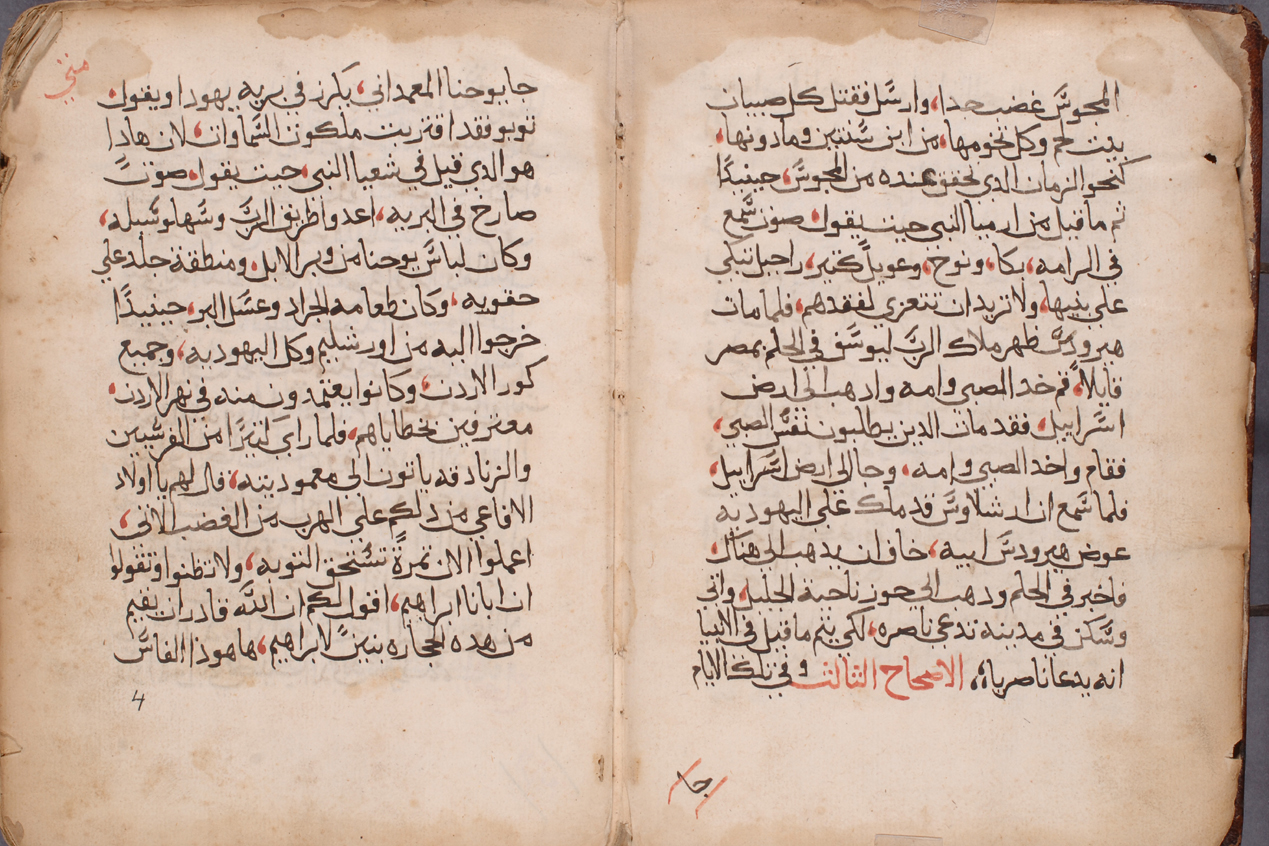 المجوسَ غضب جدا، وارسَل فقتل كل صبيان
بيت لحم وكل تخومها، من ابن سَنتين وما دونها،
كنحو الزمان الدي تحقق عنده من المجوسَ، حينيدًا
تم ما قيل من ارميا النبي حيت يقول، صوت سَمع
في الرامه، بكا، ونوح، وعويلٌ كتير، راحيل تبكي
علي بنيها، ولا تريد ان تتعزي لفقدهم، فلما مات
هيرودسَ ظهر ملاك الربَ ليوسَف في الحلم بمصر
قايلاً، قم خد الصبي وامه وادهب الي ارض
اسَراييل، فقد مات الدين يطلبون نفسَ الصبي،
فقام واخد الصبي وامه، وجا الي ارض اسَراييل،
فلما سَمع ان ارشلاوسَ قد ملك علي اليهوديه
عوض هيرودسَ ابيه، خاف ان يدهب الي هناك،
فاخبر في الحلم ودهب الي حوز ناحية الجليل، واتي
وسَكن في مدينه تدعي ناصره، لكي يتم ما قيل في الانبيا
انه يدعا ناصريا، الاصحاح التالت وفي تلك الايام
جا
متي
جا يوحنا المعمداني، يكرز في بريه يهودا ويقول،
توبو فقد اقتربت ملكوت السَماوات، لان هادا
هو الدي قيل في شعيا النبي، حيت يقول، صوتٌ
صارخ في البريه، اعدوا طريق الربَ وسَهلو سَبله،
وكان لباسَ يوحنا من وبر الابل، ومنطقة جلد علي
حقويه، وكان طعامه الجراد وعسَل البر، حينيدًا
خرجوا اليه من اورشليم وكل اليهوديه، وجميع
كور الاردن، وكانوا يعتمدون منه في نهر الاردن،
معترفين بخطاياهم، فلما راي كتيرًا من الفرسَيين
والزنادقه ياتون الي معموديته، قال لهم يا اولاد
الافاعي من دلكم علي الهرب من الغضب الاتي،
اعملوا الان تمرةً تسَتحق التوبه، ولا تظنوا وتقولوا
ان ابانا ابراهيم، اقول لكم ان الله قادر ان يقيم
من هده الحجاره بنينً لابراهيم، ها هودا الفاسَ
4